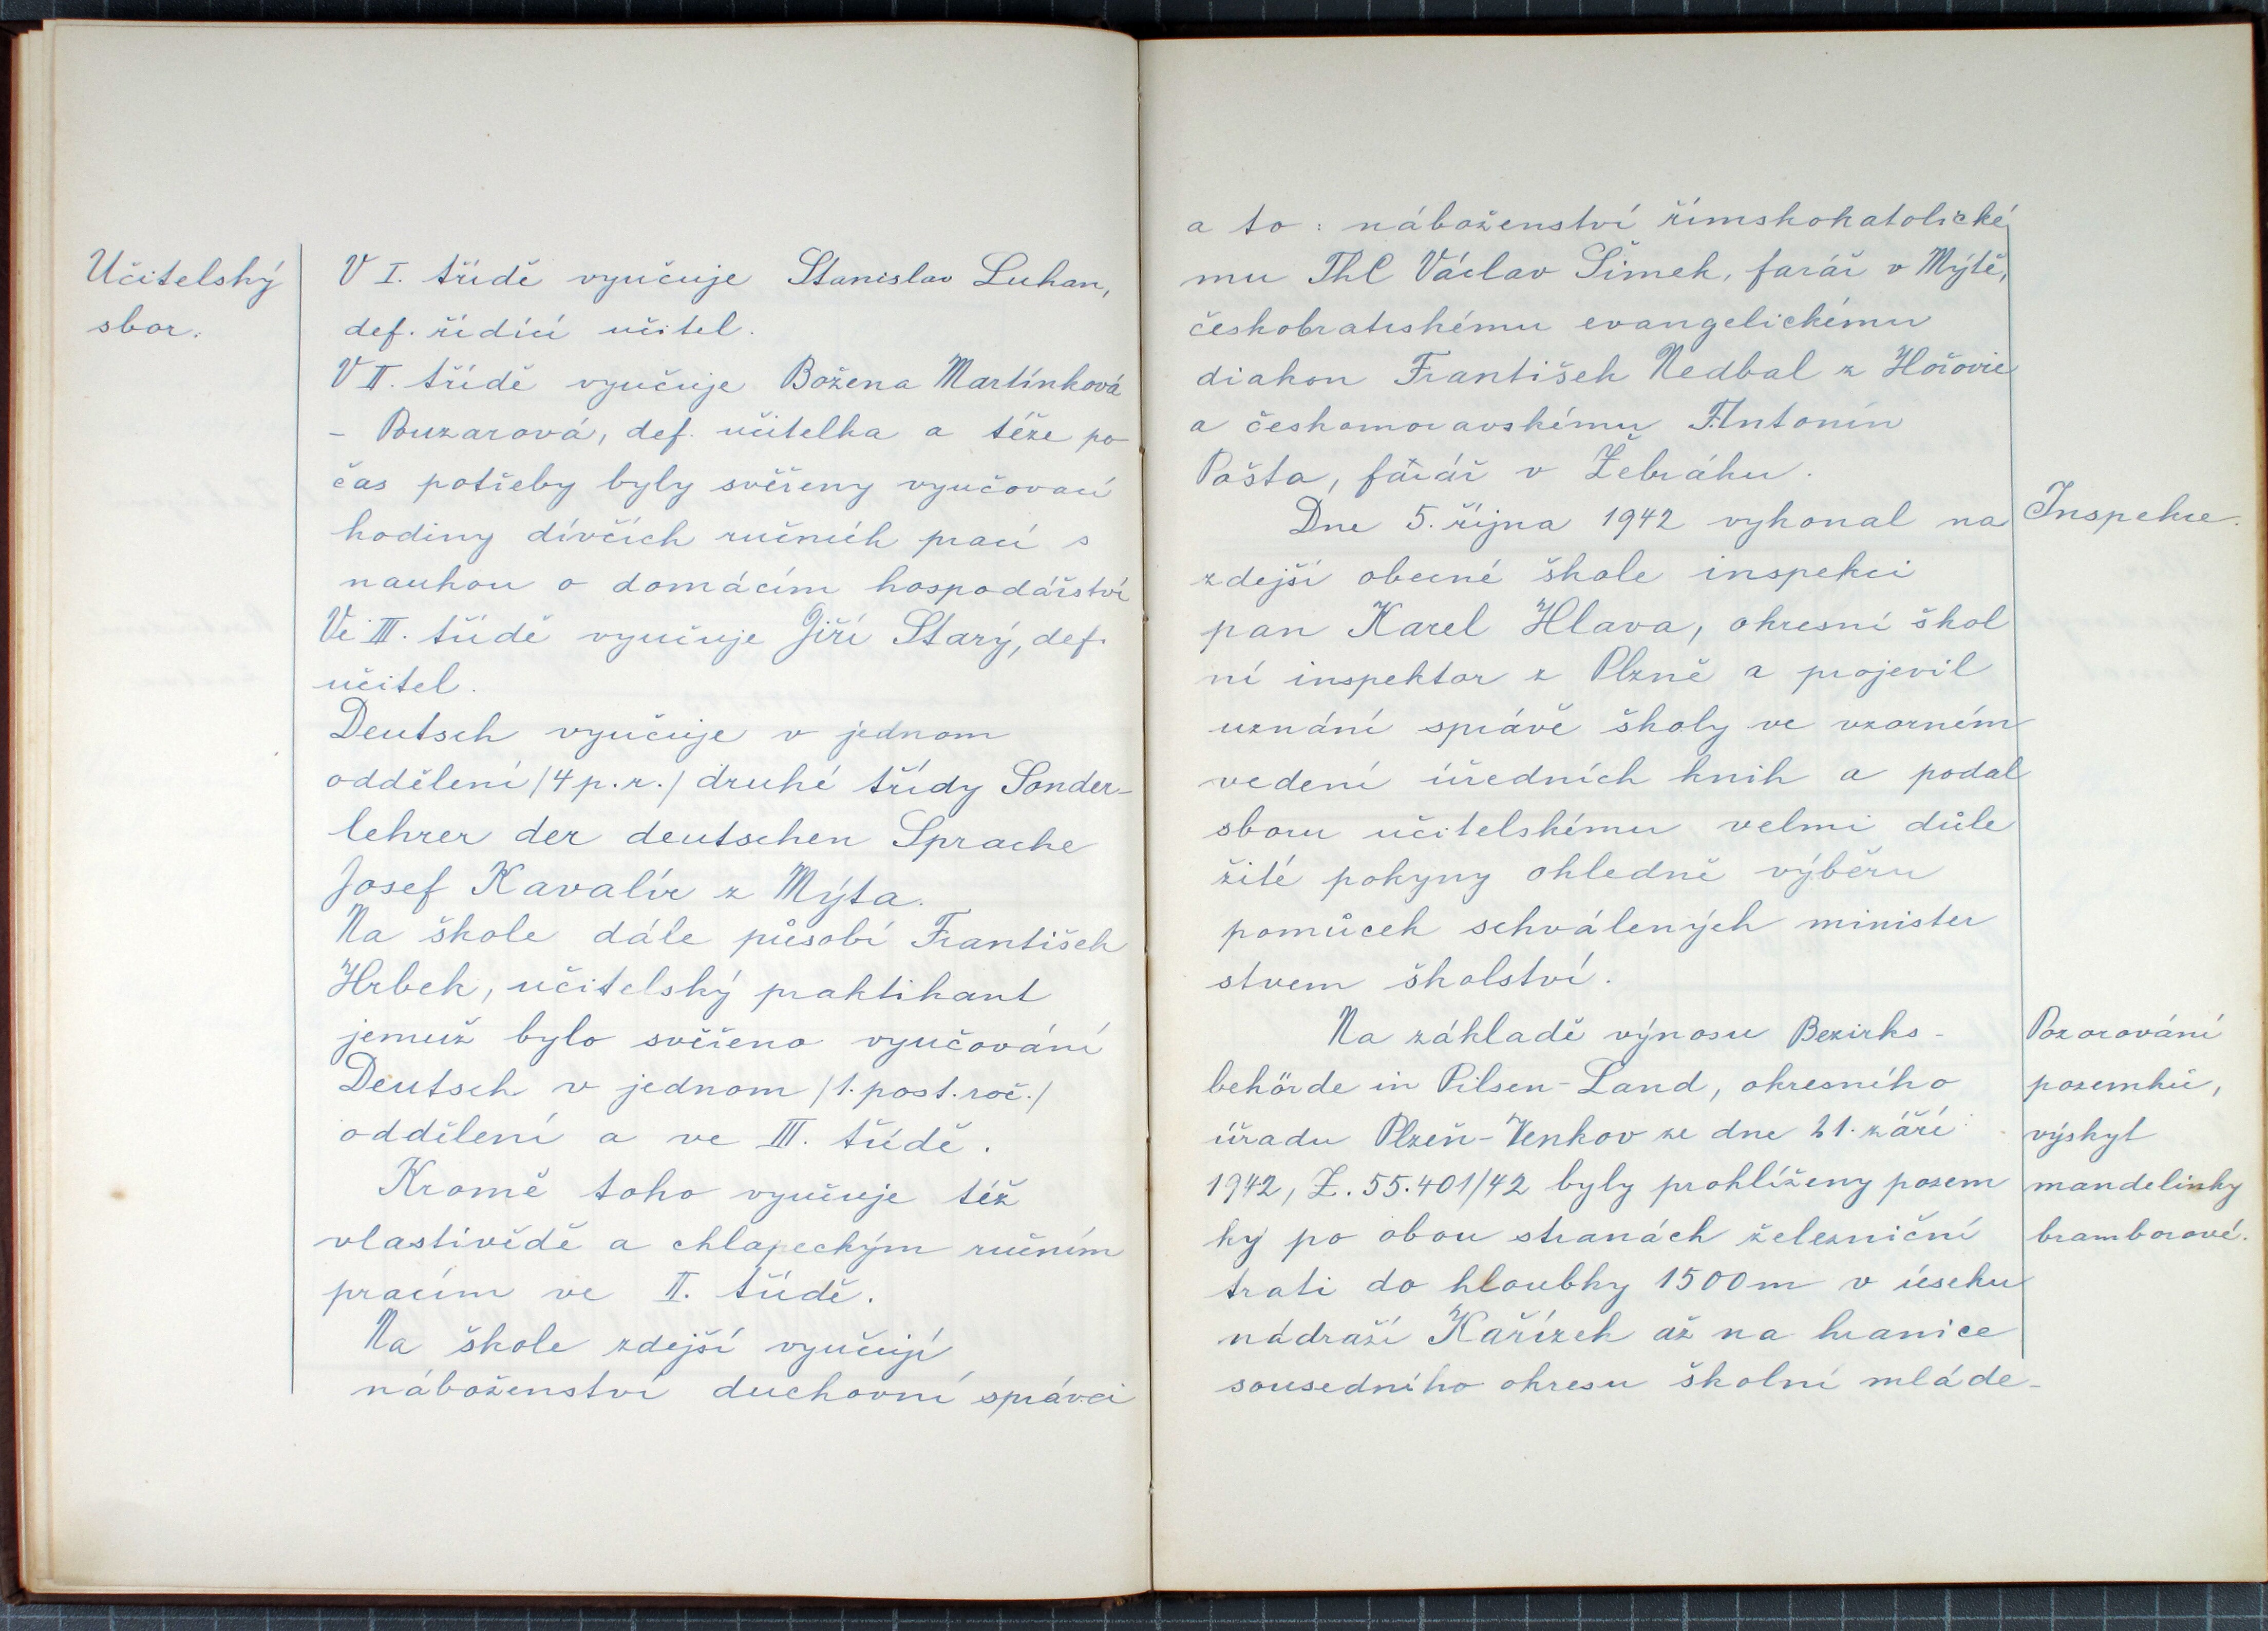 Učitelský
sbor.
V I. třídě vyučuje Stanislav Luhan,
def. řídící učitel.
V II. třídě vyučuje Božena Martínková
- Buzarová, def. učitelka a téže po
čas potřeby byly svěřeny vyučovací
hodiny dívčích ručních prací s
naukou o domácím hospodářství
Ve III. třídě vyučuje Jiří Starý, def.
učitel.
Deutsch vyučuje v jednom
oddělení /4 p. r./ druhé třídy Sonder-
lehrer der deutschen Sprache
Josef Kavalír z Mýta.
Na škole dále působí František
Hrbek, učitelský praktikant
jemuž bylo svěřeno vyučování
Deutsch v jednom /1. post. roč./
oddělení a ve III. třídě.
Kromě toho vyučuje též
vlastivědě a chlapeckým ručním
pracím ve II. třídě.
Na škole zdejší vyučují
náboženství duchovní správci
a to: náboženství římskokatolické
mu ThC Václav Šimek, farář v Mýtě,
českobratrskému evangelickému
diakon František Nedbal z Hořovic
a českomoravskému Antonín
Pošta, farář v Žebráku.
Dne 5. října 1942 vykonal na
zdejší obecné škole inspekci
pan Karel Hlava, okresní škol
ní inspektor z Plzně a projevil
uznání správě školy ve vzorném
vedení úředních knih a podal
sboru učitelskému velmi důle
žité pokyny ohledně výběru
pomůcek schválených minister
stvem školství.
Na základě výnosu Bezirks-
behörde in Pilsen-Land, okresního
úřadu Plzeň-Venkov ze dne 21. září
1942, Z. 55.401/42 byly prohlíženy pozem
ky po obou stranách železniční
trati do hloubky 1500 m v úseku
nádraží Kařízek až na hranice
sousedního okresu školní mláde-
Inspekce.
Pozorování
pozemků,
výskyt
mandelinky
bramborové.